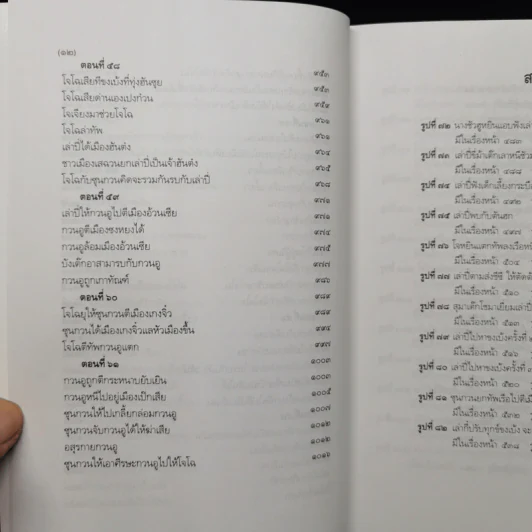 (๑๒)
ตอนที่ ๕๘ ๙๕๓
โจโฉเสียทีขงเบ้งที่ทุ่งฮันซุย ๙๕๓
โจโฉเสียด่านเองเปงก๋วน ๙๕๙
โจเจียงมาช่วยโจโฉ ๙๖๑
โจโฉล่าทัพ ๙๖๑
เล่าปี่ได้เมืองฮันต๋ง ๙๖๔
ชาวเมืองเสฉวนยกเล่าปี่เป็นเจ้าฮันต๋ง ๙๖๕
โจโฉกับซุนกวนคิดจะรวมกันรบกับเล่าปี่ ๙๖๘
ตอนที่ ๕๙ ๙๗๑
เล่าปี่ให้กวนอูไปตีเมืองอ้วนเซีย ๙๗๑
กวนอูตีเมืองซงหยงได้ ๙๗๔
กวนอูล้อมเมืองอ้วนเซีย ๙๗๕
บังเต๊กอาสามารบกับกวนอู ๙๗๗
กวนอูถูกเกาทัณฑ์ ๙๘๖
ตอนที่ ๖๐
โจโฉยุให้ซุนกวนตีเมืองเกงจิ๋ว
ซุนกวนได้เมืองเกงจิ๋วแลหัวเมืองขึ้น
โจโฉตีทัพกวนอูแตก ๙๙๗
ตอนที่ ๖๑ ๑๐๐๓
กวนอูถูกตีกระหนาบยับเยิน ๑๐๐๓
กวนอูหนีไปอยู่เมืองเป๊กเสีย ๑๐๐๕
ซุนกวนให้ไปเกลี้ยกล่อมกวนอู ๑๐๐๗
ซุนกวนจับกวนอูได้ให้ฆ่าเสีย ๑๐๑๒
อสุรกายกวนอู ๑๐๑๒
ซุนกวนให้เอาศีรษะกวนอูไปให้โจโฉ ๑๐๑๖
รูปที่ ๗๒ นางชัวฮูหยินแอบฟังเล่า
มีในเรื่องหน้า ๔๘๓
รูปที่ ๗๓
มีในเรื่องหน้า ๔๘๘
รูปที่ ๗๔
มีในเรื่องหน้า ๔๙๒
รูปที่ ๗๕ เล่าปี่พบกับตันฮก
มีในเรื่องหน้า ๔๙๗
รูปที่ ๗๖ โจหยินแตกทัพลงเรือ
มีในเรื่องหน้า ๕๐๔
รูปที่ ๗๗ เล่าปี่ตามส่งชีซี
มีในเรื่องหน้า ๕๑๐
รูปที่ ๗๘ สุมาเต๊กโชมาเยี่ยมเล่า
มีในเรื่องหน้า ๕๑๓
รูปที่ ๗๙ เล่าปี่ไปหาขงเบ้งครั้งที่
มีในเรื่องหน้า ๕๑๖
รูปที่ ๘๐ เล่าปี่ไปหาขงเบ้งครั้งที่
มีในเรื่องหน้า ๕๒๐
รูปที่ ๘๑ ซุนกวนยกทัพเรือไปตี
มีในเรื่องหน้า ๕๓๒
รูปที่ ๘๒ เล่ากี๋ปรับทุกข์ขงเบ้ง
มีในเรื่องหน้า ๕๓๘